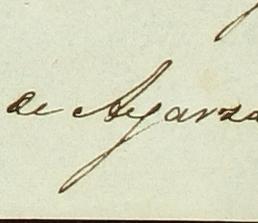 de Ayarza